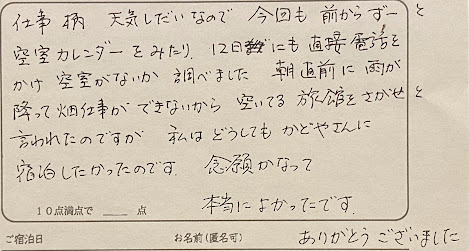 仕事柄 天気しだいなので 今回も 前からずーと
空室カレンダーをみたり、12日にも直接電話を
かけ 空室がないか 調べました 朝直前に雨が
降って畑仕事が できないから 空いてる 旅館をさがせと
言われたのですが 私はどうしても かどやさんに
宿泊したかったのです。 念願かなって
本当によかったです。
10点満点で ___ 点
ご宿泊日 お名前(匿名可) ありがとうございました